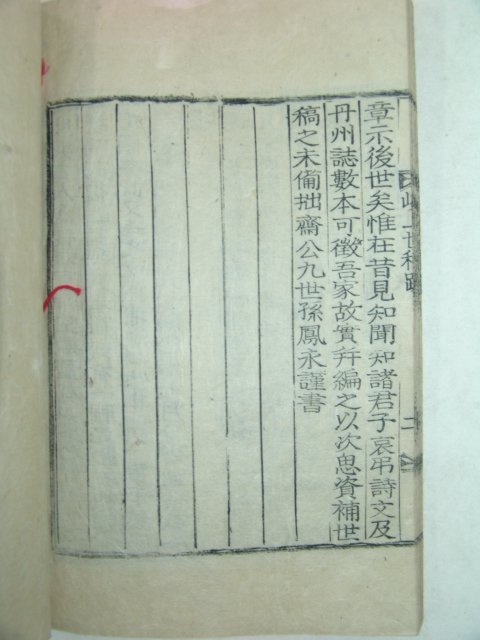 章示後世矣惟在昔見知聞知諸君子哀弔詩文及
丹州誌數本可徵吾家故實幷編之以次思資補世
稿之未備拙齋公九世孫鳳永謹書
世稿跋
二